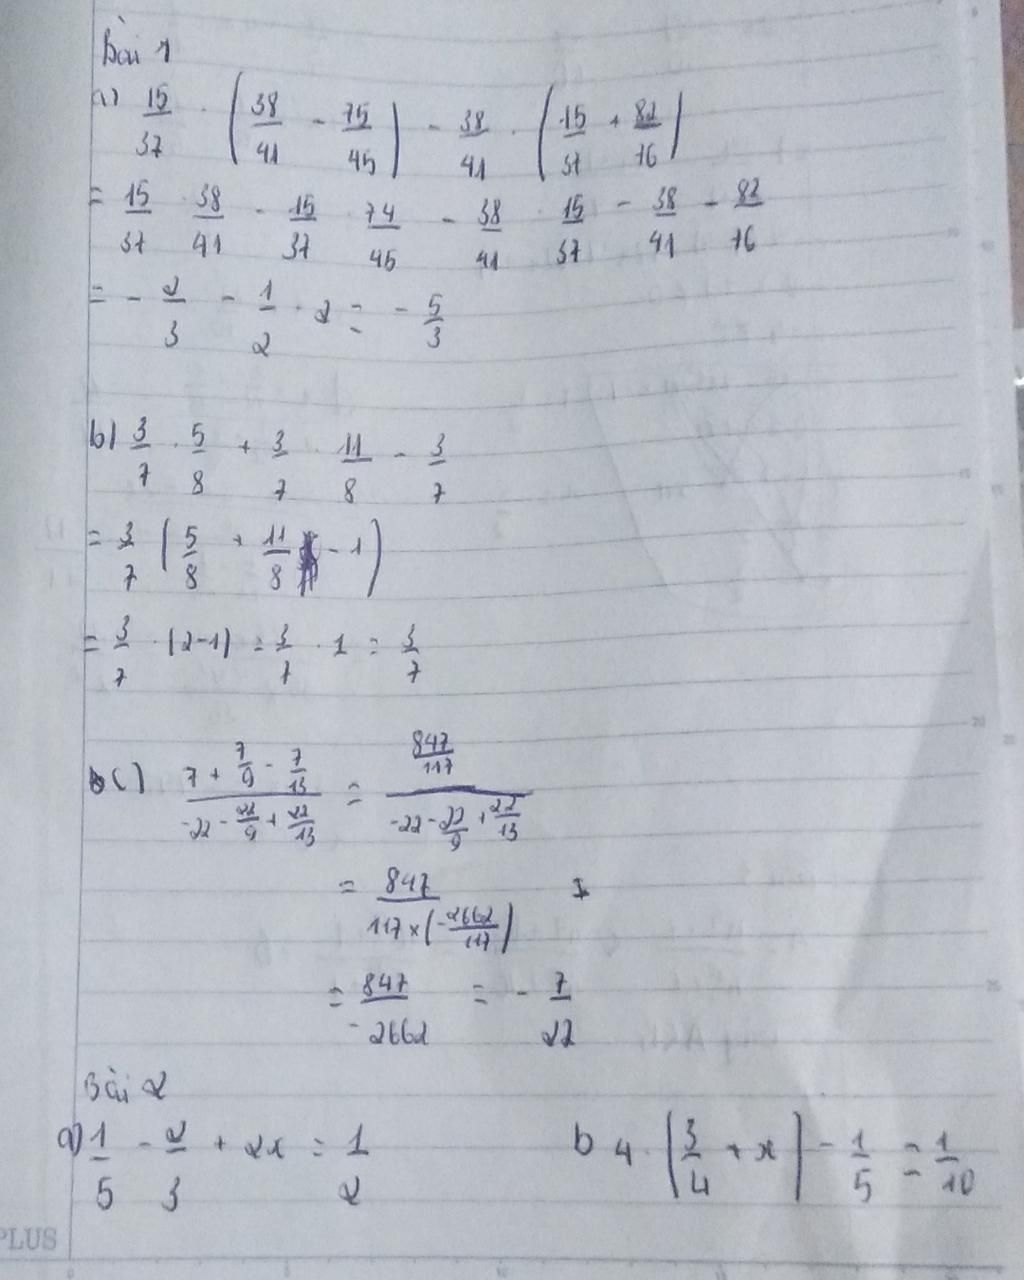 Bài 1
a) 15/37 . (38/41 - 75/45) - 38/41 . (15/37 + 82/76)
= 15/37 . 38/41 - 15/37 . 74/45 - 38/41 . 15/37 - 38/41 . 82/76
= - 2/3 - 1/2 . 2 = - 5/3
b) 3/7 . 5/8 + 3/7 . 11/8 - 3/7
= 3/7 (5/8 + 11/8 - 1)
= 3/7 . (2-1) = 3/7 . 1 = 3/7
c) (7 + 7/9 - 7/13)/(-22 - 22/9 + 22/13) = (847/117)/(-22 - 22/9 + 22/13)
= 847/(117 × (-2662/117))
= 847/-2662 = - 7/22
Bài 2
a) 1/5 - 2/3 + 2x = 1/2 b 4 . (3/4 + x) - 1/5 = 1/10
PLUS